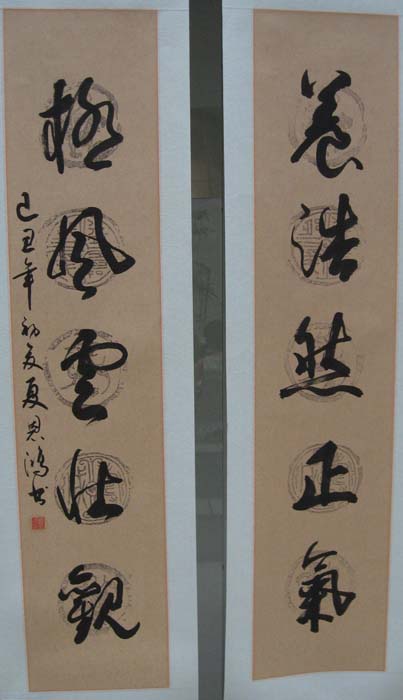 養浩然正氣
極風雲壯觀
己丑年初夏夏恩鴻书